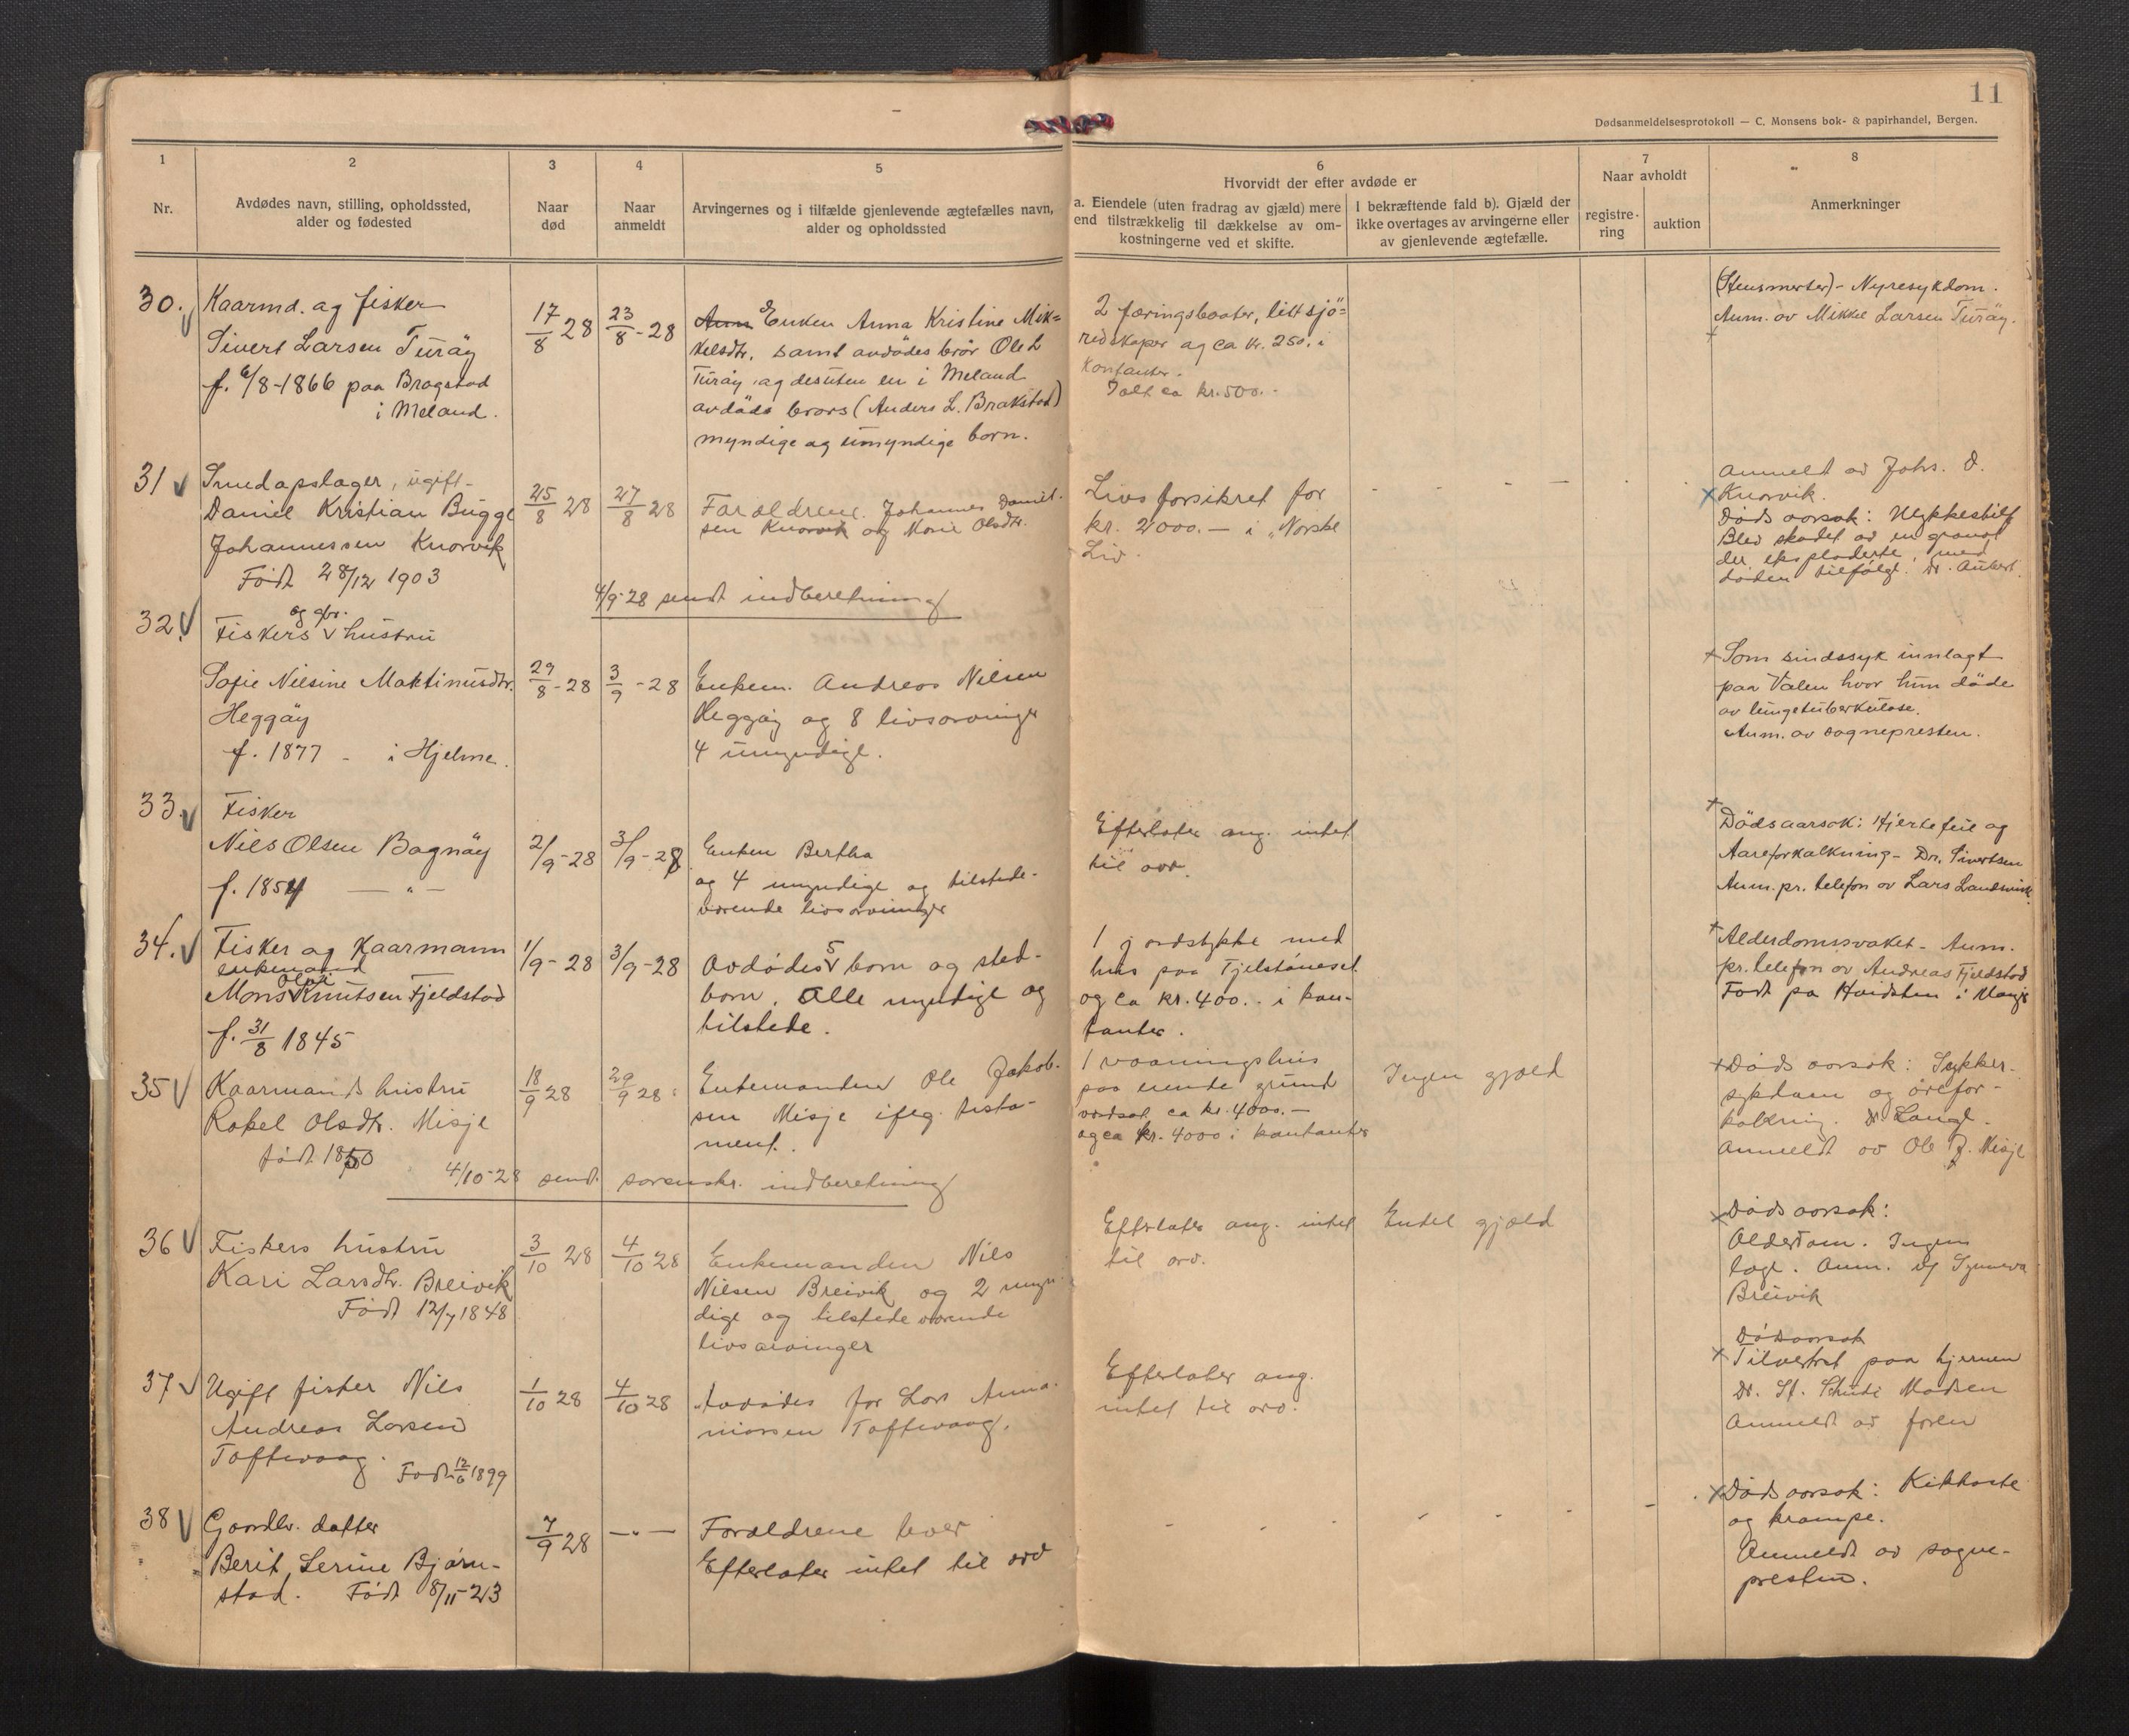 11
Dødsanmeldelsesprotokoll — C. Monsens bok- & papirhandel, Bergen.
1
2
3
4
5
6
7
8
Nr.
Avdødes navn, stilling, opholdssted,
alder og fødested
Naar
død
Naar
anmeldt
Arvingernes og i tilfælde gjenlevende ægtefælles navn,
alder og opholdssted
Hvorvidt der efter avdøde er
a. Eiendele (uten fradrag av gjæld) mere
end tilstrækkelig til dækkelse av om-
kostningerne ved et skifte.
I bekræftende fald b). Gjæld der
ikke overtages av arvingerne eller
av gjenlevende ægtefælle.
Naar avholdt
registre-
ring
auktion
Anmerkninger
30.
Kaarmd. og fisker
Sivert Larsen Turöy
f. 6/8-1866 paa Brogstad
i Meland.
17/8 28
23/8-28
Enken Anna Kristine Mik=
kelsdtr. samt avdödes bror Ole L
Turöy og desuten en i Meland
avdöds brors (Anders L. Brakstad)
myndige og umyndige born.
2 færingsbaater, litt sjö=
redskaper og ca kr. 250. i
Kontanter.
Ialt ca kr. 500.-
Nyresykdom.
Anm. av Mikkel Larsen Turöy.
31
Smedopslager, ugift-
Daniel Kristian Bugge
Johannessen Knarvik
Født 28/12 1903
25/8 28
27/8 28
Forældrene. Johannes Daniel-
sen Knarvik og Marie Olsdtr.
Livsforsikret for
kr. 2000.— i „Norske
Liv.
- - - - - -
Anmeldt av Johs. D.
Knarvik.
Døds aarsak: Ulykkestilf
Blev skadet av en granat
der eksploderte, med
døden tilfølge. Dr.
4/9-28 sendt indberetning
32.
Fiskers og gbr. hustru
Sofie Nilsine Martinusdtr.
Heggöy
f. 1877 - i Hjelme.
29/8-28
3/9-28
Enkem. Andreas Nilsen
Heggöy og 8 livsarvinger
4 umyndige.
Som sindssyk innlagt
paa Valen hvor hun döde
av lungetuberkulose.
Anm. av sognepresten.
33.
Fisker
Nils Olsen Bagnöy
f. 1854 — " —
2/9-28
3/9-28
Enken Bertha
og 4 myndige og tilstede-
værende livsarvinger
Efterlater ang. intet
til arv.
Dödsaarsak: Hjertefeil og
Aareforkalkning - Dr. Sivertsen
Anm. pr. telefon av Lars Landsvik
34.
Fisker og Kaarmann
enkemand
Mons Olai Knutsen Fjeldstad
f. 31/8 1845
1/9-28
3/9-28
Avdødes 5 born og sted-
born. Alle myndige og
tilstede.
1 jordstykke med
hus paa
og ca kr. 400.- i kon-
tanter.
Alderdomssvaket - Anm.
pr. telefon av Andreas Fjeldstad
Født pa i Manger
35
Kaarmands hustru
Rakel Olsdtr. Misje
født 1850
18/9 28
29/9 28
Enkemanden Ole Jakob-
sen Misje ifølg. testa-
ment.
1 vaaningshus
paa eiende grund
verdsat ca kr. 4000.—
og ca kr. 4000 i kontanter
Ingen gjæld
Døds aarsak: Sukker-
sykdom og årefor-
kalkning. Dr. Lange.
Anmeldt av Ole J. Misje
4/10-28 sendt sorenskr. indberetning
36
Fiskers hustru
Kari Larsdtr. Breivik
Født 12/7 1848
3/10 28
4/10 28
Enkemanden Nils
Nilsen Breivik og 2 myn-
dige og tilstedeværende
livsarvinger
Efterlater ang. intet
til arv.
Endel gjæld
Døds aarsak:
Alderdom. Ingen
læge. Anm. af Synneva
Breivik
37
Ugift fisker Nils
Andreas Larsen
Toftevaag.
Født 12/6 1899
1/10 28
4/10 28
Avdødes far Lars Anna-
niassen Toftevaag.
Efterlater ang.
intet til arv.
Dödsaarsak
Tilvekst paa hjernen
Dr. St. Schütz Madsen
Anmeldt av faren
38
Gaardbr. datter
Berit Serine Bjørn-
stad. Født 8/11-23
7/9 28
— " —
Forældrene lever
Efterlater intet til arv
- - - - - -
Døds aarsak: Kikhoste
og krampe.
Anmeldt av sogne-
presten.